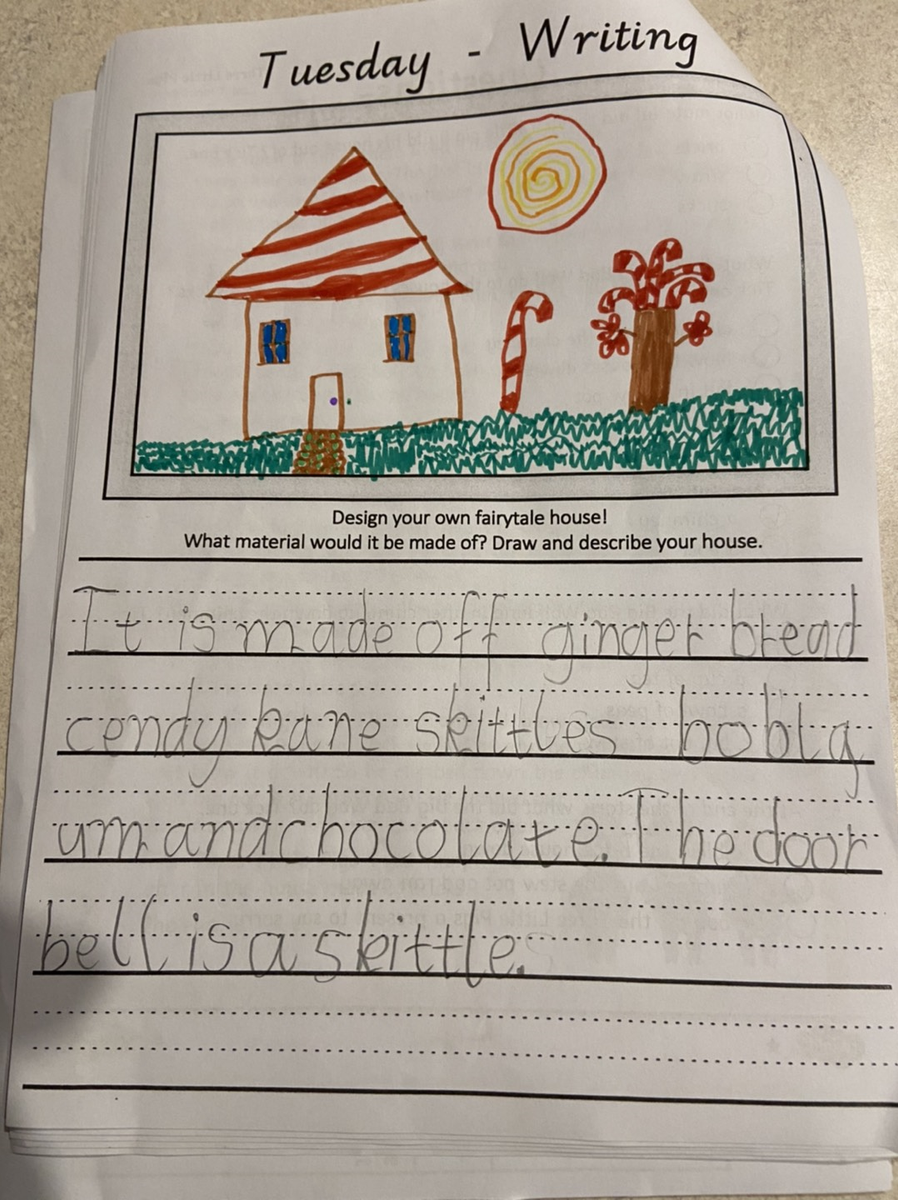 Tuesday - Writing
Design your own fairytale house!
What material would it be made of? Draw and describe your house.
It is made off ginger bread
cendy kane skittles bobla
um and chocolate. The door
bell is a skittle.